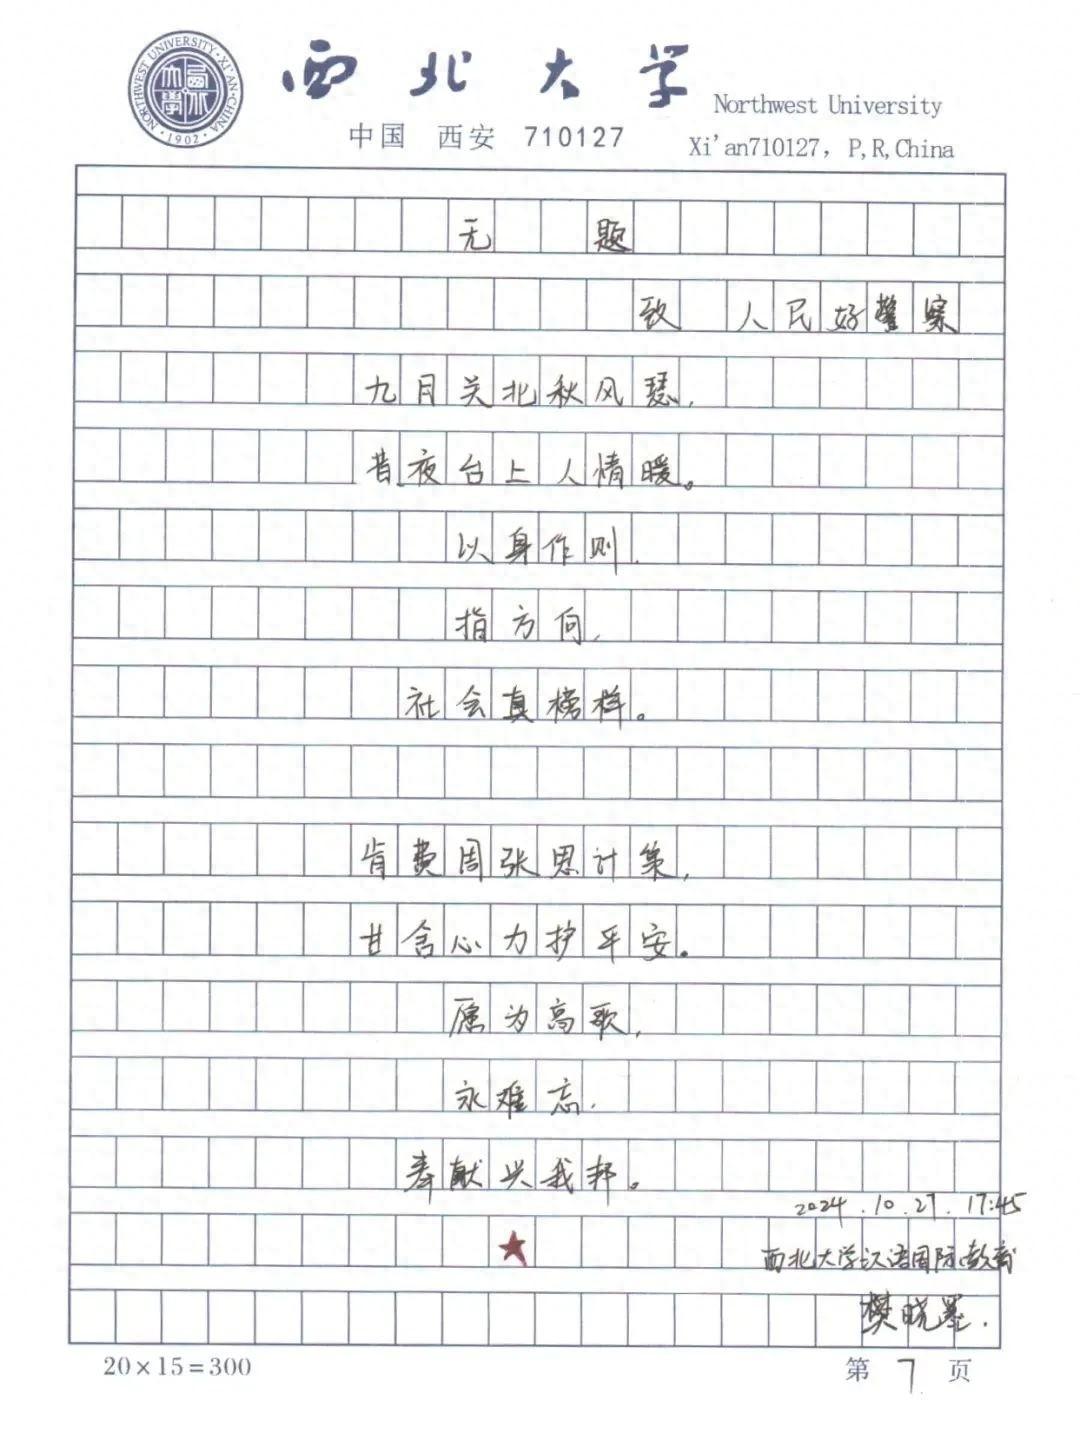 西北大学
NORTHWEST UNIVERSITY·XI'AN·CHINA
·1902·
Northwest University
中国 西安 710127
Xi'an710127, P,R,China
无题
致 人民好警察
九月关北秋风瑟,
昔夜台上人情暖。
以身作则,
指方向,
社会真榜样。
肯费周张思计策,
甘舍心力护平安。
愿为高歌,
永难忘,
奉献兴我邦。
2024.10.27. 17:45
西北大学汉语国际教育
樊晓墨.
20×15=300
第 7 页